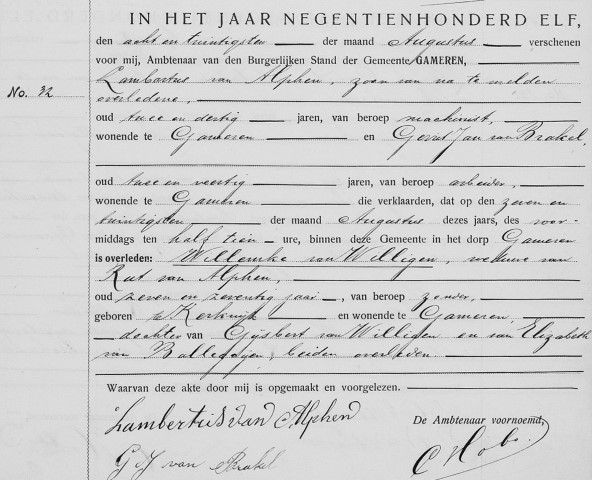 IN HET JAAR NEGENTIENHONDERD ELF,
den acht en twintigsten der maand Augustus verschenen
voor mij, Ambtenaar van den Burgerlijken Stand der Gemeente GAMEREN,
No. 32
Lambertus van Alphen, zoon van na te melden
overledene,
oud twee en dertig jaren, van beroep machinist,
wonende te Gameren en Gerrit Jan van Brakel,
oud twee en veertig jaren, van beroep arbeider,
wonende te Gameren die verklaarden, dat op den zeven en
twintigsten der maand Augustus dezes jaars, des voor-
middags ten half tien ure, binnen deze Gemeente in het dorp Gameren
is overleden: Willemke van Willigen, weduwe van
Rut van Alphen,
oud zeven en zeventig jaar, van beroep zonder,
geboren te Kerkwijk en wonende te Gameren,
dochter van Gijsbert van Willigen en van Elizabeth
van Ballegooyen, beiden overleden.
Waarvan deze akte door mij is opgemaakt en voorgelezen.
Lambertus van Alphen
De Ambtenaar voornoemd,
G J van Brakel
C Hobo